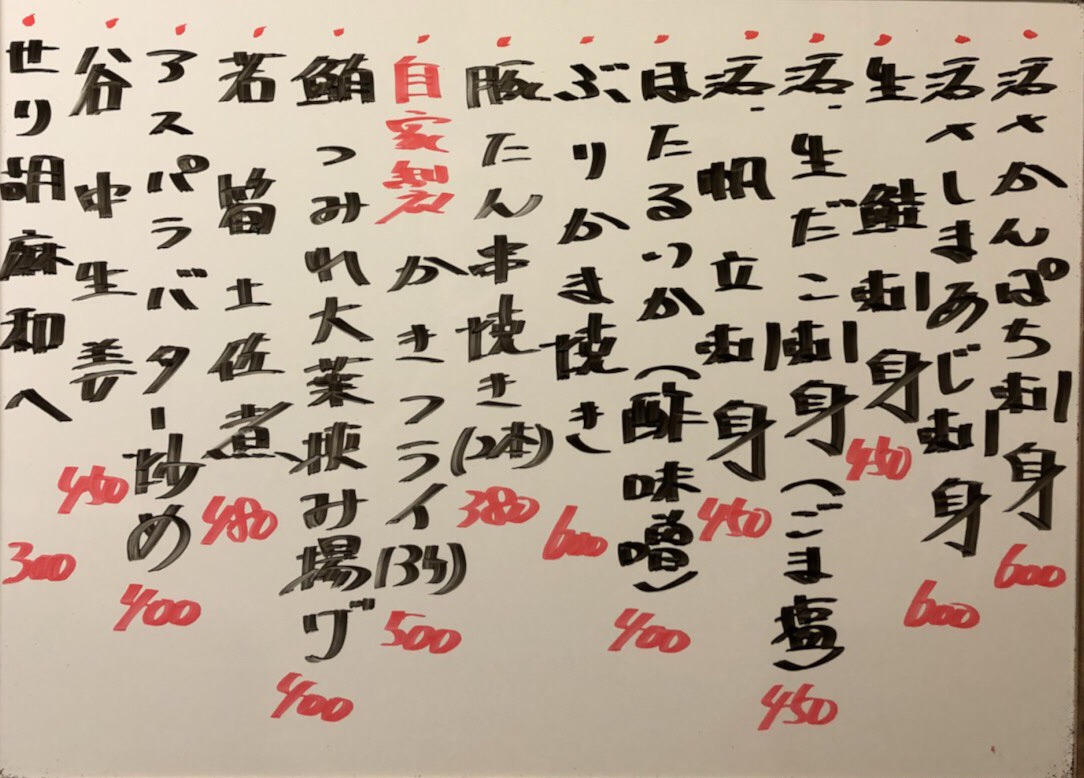 活〆かんぱち刺身 600
活〆しまあじ刺身 600
生 鮭刺身 450
活・生だこ刺身(ごま塩) 450
活・帆立刺身 450
ほたるいか(酢味噌) 400
ぶりかま焼き 600
豚たん串焼き(2本) 380
自家製 かきフライ(3ケ) 500
鮪つみれ大葉挟み揚げ 400
若筍土佐煮 480
アスパラバター炒め 400
谷中生姜 450
せり胡麻和へ 300